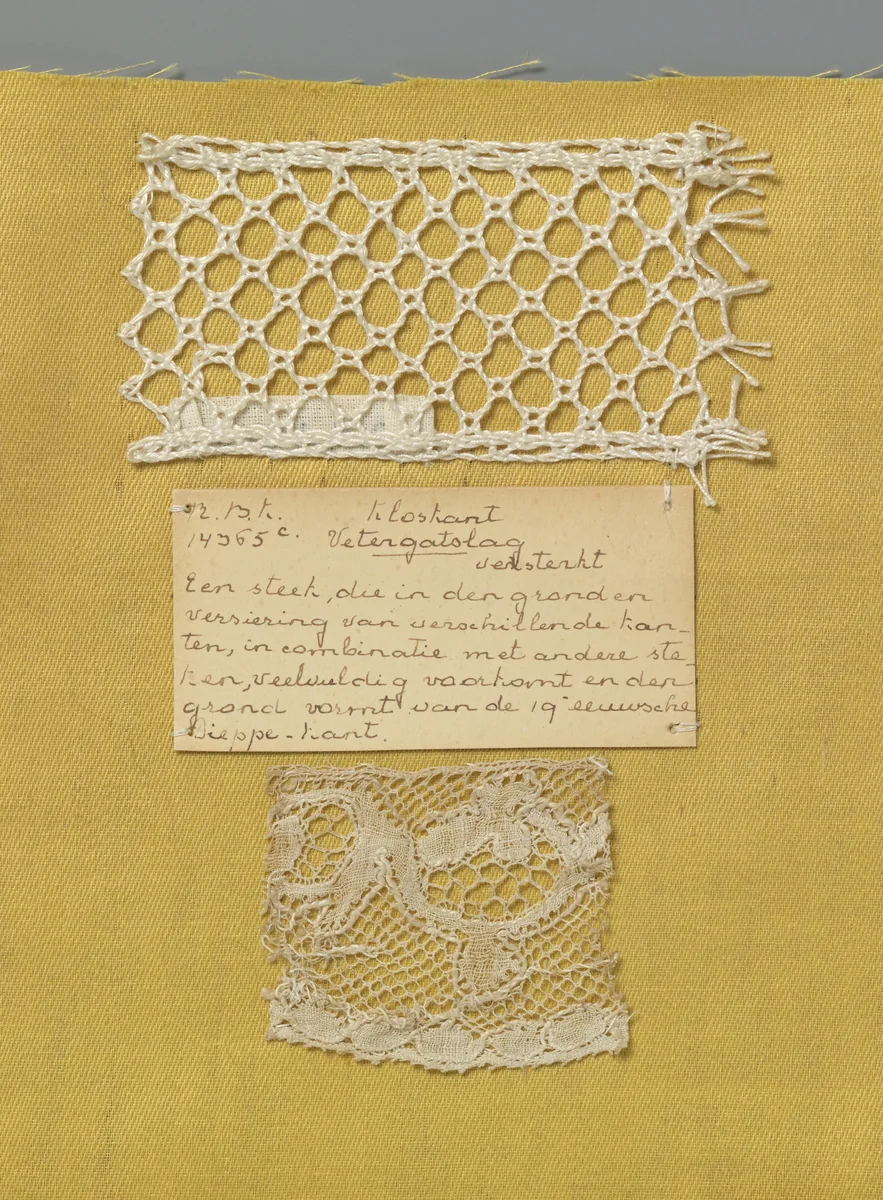 N.B.K. Kloskant
14365 c. Vetergatslag
versterkt
Een steek, die in den grond en
versiering van verschillende kan-
ten, in combinatie met andere ste-
ken, veelvuldig voorkomt en den
grond vormt van de 19e eeuwsche
Dieppe-kant.